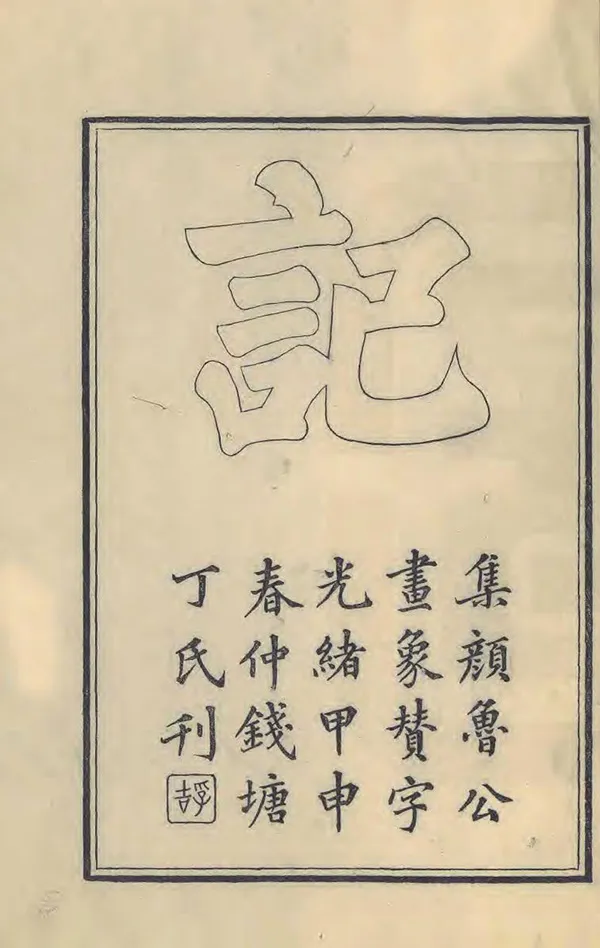 記
集顏魯公
畫象赞字
光緒甲申
春仲錢塘
丁氏刊